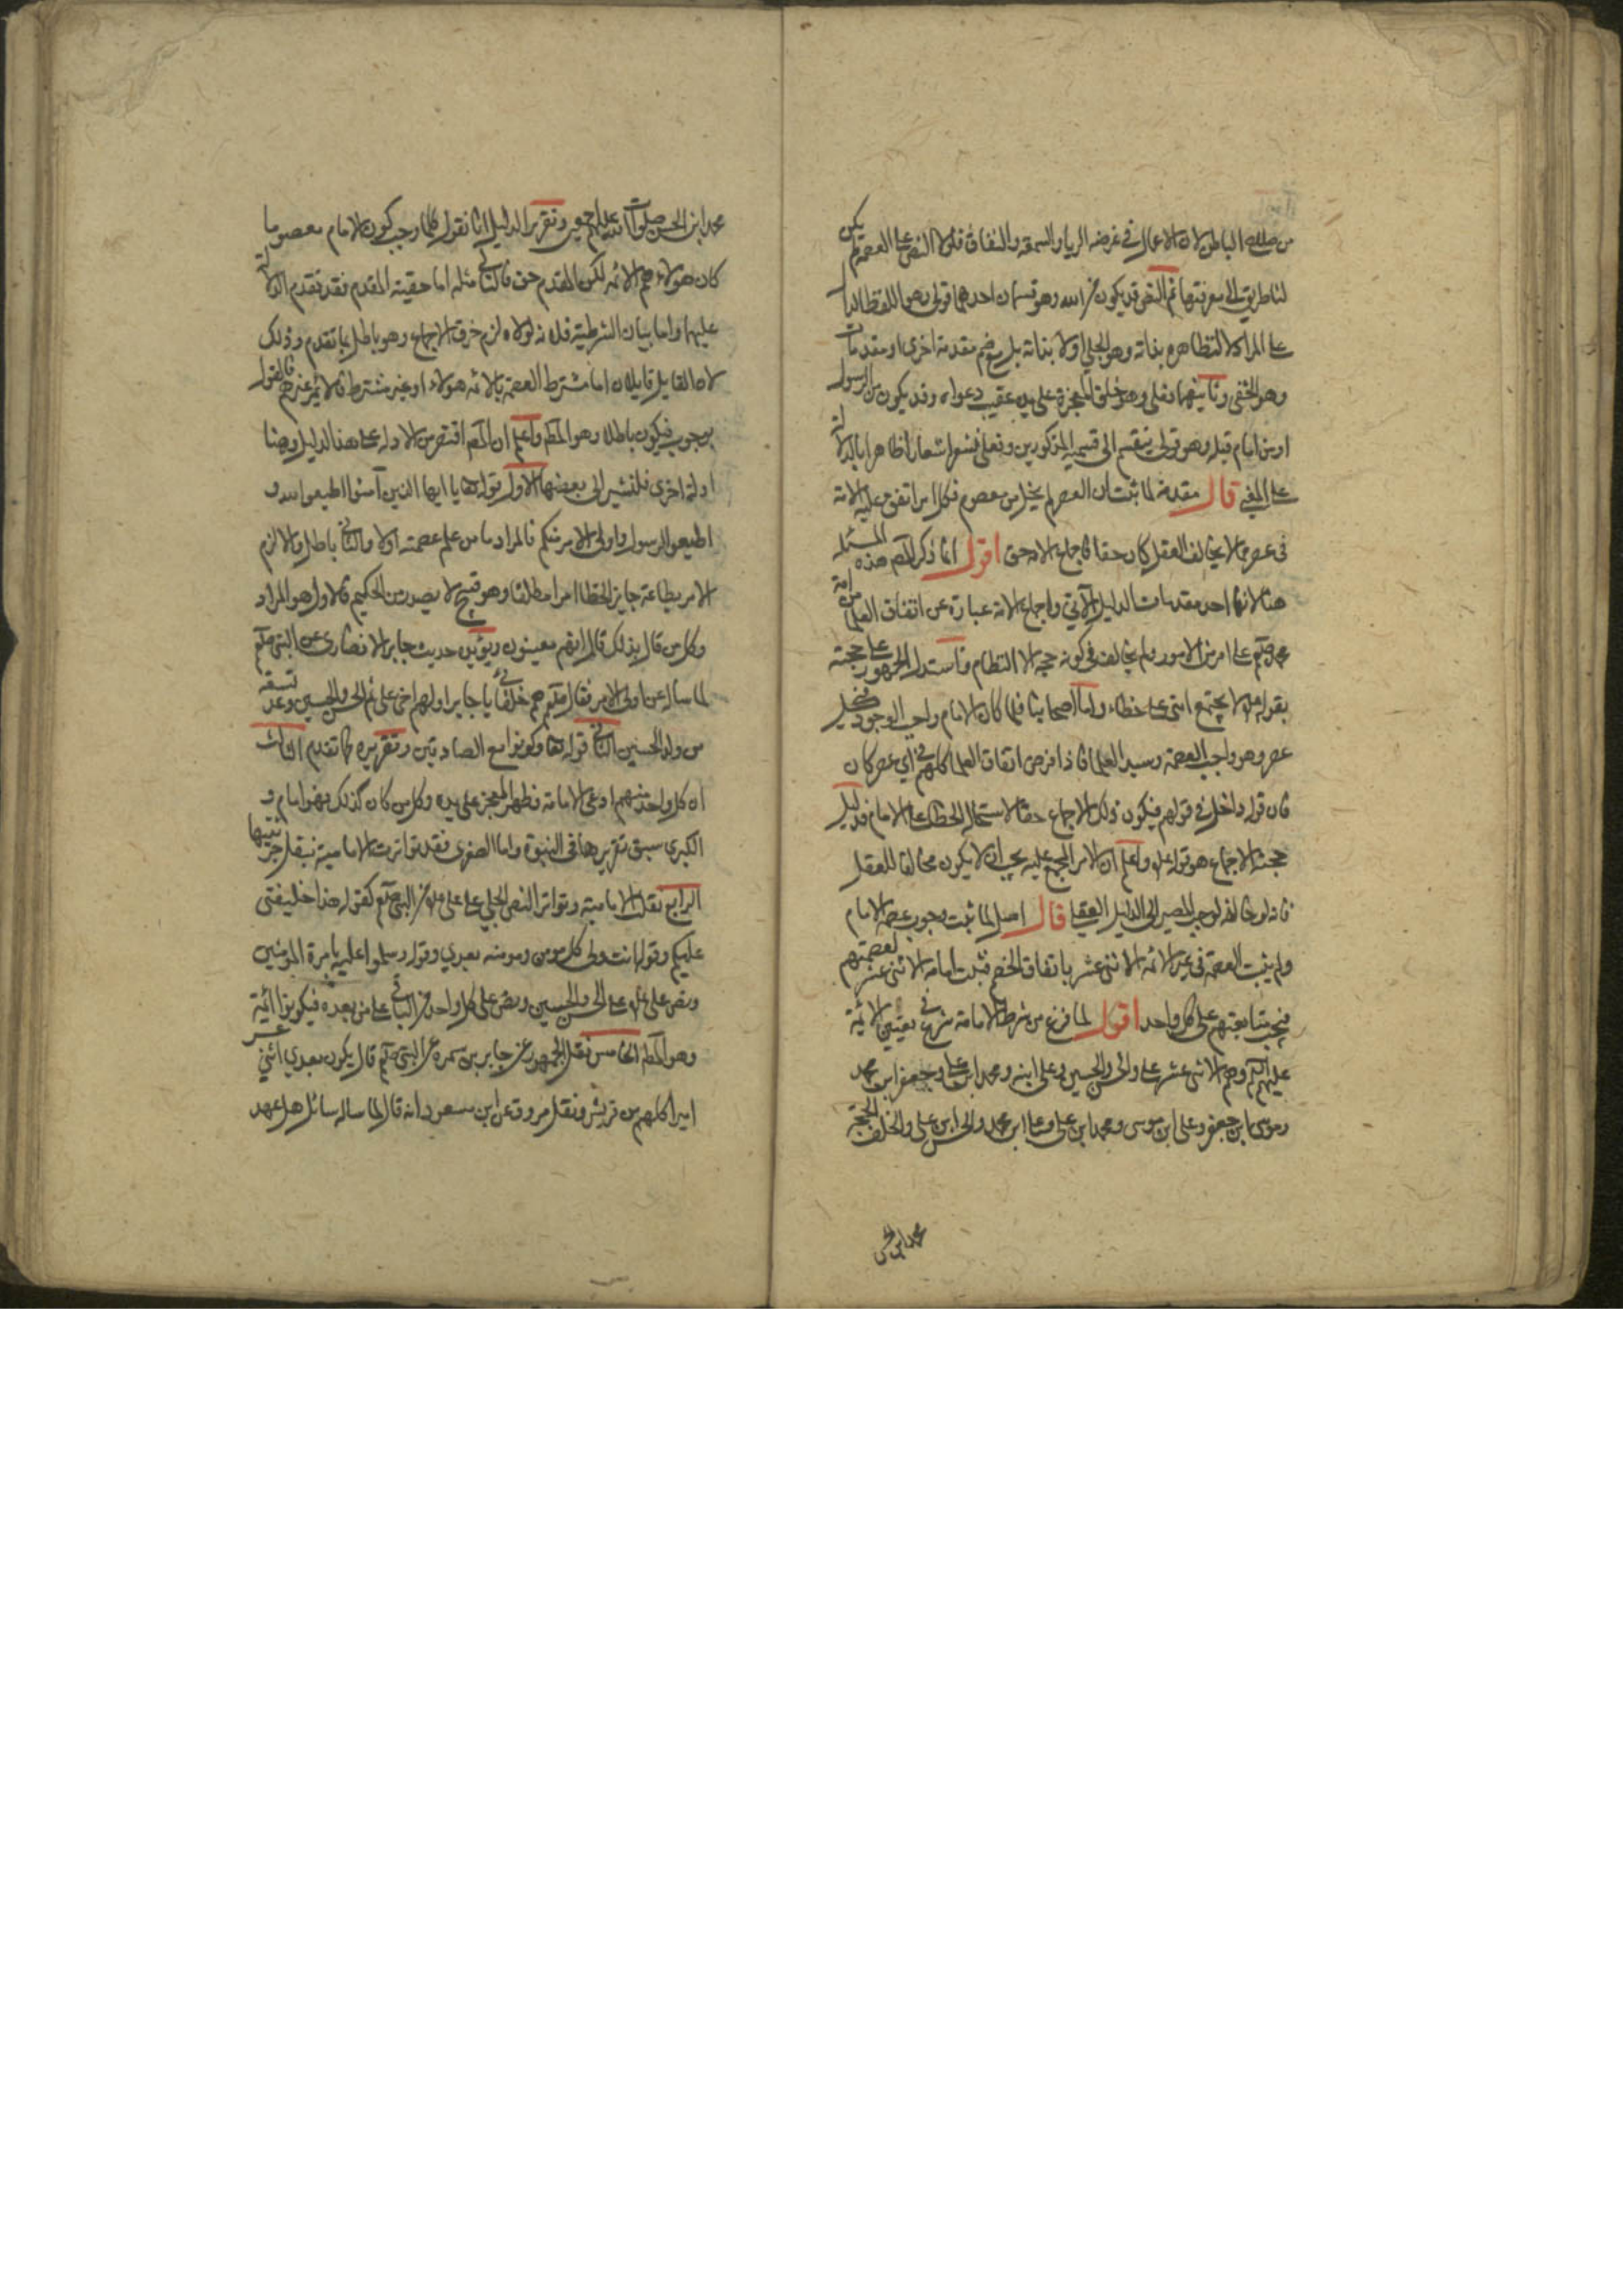 من صلاح الباطن لان الاعمال في عرضه الريا والسمعة والنفاق فلولا النص على العصمة لم يكن
لنا طريق الى معرفتها ثم النص قد يكون من الله وهو قسمان احدهما قولى وهو اللفظ الدال
على المراد لا لتظاهره بذاته وهو الجلي او لا بذاته بل مع ضم مقدمة اخرى او مقدمات
وهو الخفى وثانيهما فعلى وهو خلق المعجزة على يده عقيب دعواه وقد يكون من الرسول
او من امام قبله وهو قولى ينقسم الى قسميه المذكورين وفعلى فيشعر اشعارا ظاهرا بالدلالة
على المعنى قال مقدمة لما ثبت ان العصر لم يخل من معصوم فكل امر اتفق عليه الامة
في عصر مما لا يخالف العقل كان حقا فاجماع الامة حق اقول انما ذكر المصم هذه المسئلة
هنا لانها احد مقدمات الدليل الآتي واجماع الامة عبارة عن اتفاق العلماء من امة
محمد صلعم على امر من الامور ولم يخالف في كونه حجة الا النظام فاستدل الجمهور على حجيته
بقوله ع لا يجتمع امتى على خطاء واما اصحابنا فلما كان الامام واجب الوجود في كل
عصر وهو واجب العصمة وسيد العلما فاذا فرض اتفاق العلما كلهم في اي عصر كان
فان قوله داخل في قولهم فيكون ذلك الاجماع حقا لاستحالة الخطاء على الامام فدليل
حجية الاجماع هو قوله ع واعلم ان الامر المجمع عليه يجب ان لا يكون مخالفا للعقل
فانه لو خالفه لوجب المصير الى الدليل العقلي قال اصل لما ثبت وجوب عصمة الامام
ولم يثبت العصمة في غير الائمة الاثنى عشر باتفاق الخصم فثبت امامة الاثنى عشر لعصمتهم
فيجب متابعتهم على كل واحد اقول لما فرغ من شرايط الامامة شرع في تعيين الائمة
عليهم السلم وهم الاثنى عشر على والحسن والحسين وعلى ابنه ومحمد ابن على وجعفر ابن محمد
وموسى ابن جعفر وعلى ابن موسى ومحمد ابن على وعلى ابن محمد والحسن ابن على والخلف الحجة
محمد ابن الحسن
محمد ابن الحسن صلوات الله عليهم اجمعين وتقرير الدليل انا نقول كلما وجب كون الامام معصوما
كان هولاء هم الائمة لكن المقدم حق فالتالي مثله اما حقيته المقدم فقد تقدم الدلالة
عليها واما بيان الشرطية فلانه لولاه لزم خرق الاجماع وهو باطل بما تقدم وذلك
لان القايل قايلان اما مشترط العصمة بالائمة هولاء او غير مشترط فالائمة غيرهم فالقول
بوجوب فيكون باطلا وهو المط واعلم ان المصم اقتصر من الادلة على هذا الدليل وهنا
ادلة اخرى فلنشير الى بعضها الاول قوله تعا يا ايها الذين آمنوا اطيعوا الله و
اطيعوا الرسول واولى الامر منكم فالمراد ما من علم عصمته اولا والثاني باطل والا لزم
الامر بطاعة جايز الخطا امرا مطلقا وهو قبيح لا يصدر من الحكيم فالاول هو المراد
وكل من قال بذلك قال انهم معينون ويؤيده حديث جابر الانصارى عن النبي صلعم
لما ساله عن اولى الامر فقال صلعم هم خلفائي يا جابر اولهم اخى على ثم الحسن والحسين وعد تسعة
من ولد الحسين الثاني قوله تعا وكونوا مع الصادقين وتقريره كما تقدم الثالث
ان كل واحد منهم ادعى الامامة وظهر المعجز على يده وكل من كان كذلك فهو امام و
الكبرى سبق تقريرها في النبوة واما الصغرى فقد تواترت الامامية بنقل جزئيتها
الرابع نقلت الامامية وتواتر النص الجلي على على ع من النبي صلعم كقوله هذا خليفتى
عليكم وقوله انت ولى كل مومن ومومنه بعدي وقوله وسلموا عليه بامرة المومنين
ونص على ع على الحسن والحسين ونص على كل واحد من الباقي على من بعده فيكونوا ائمة
وهو المط الخامس نقل الجمهور عن جابر بن سمرة عن النبي صلعم قال يكون بعدي اثني عشر
اميرا كلهم من قريش ونقل مسروق عن ابن مسعود انه قال لما ساله سائل هل عهد